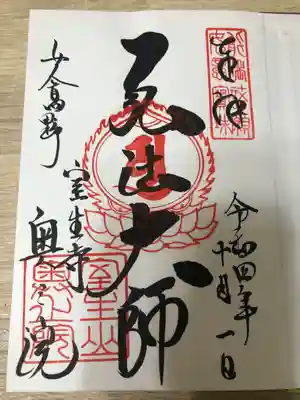 奉拝
令和四年十月一日
弘法大師
女人高野
室生寺
奥之院